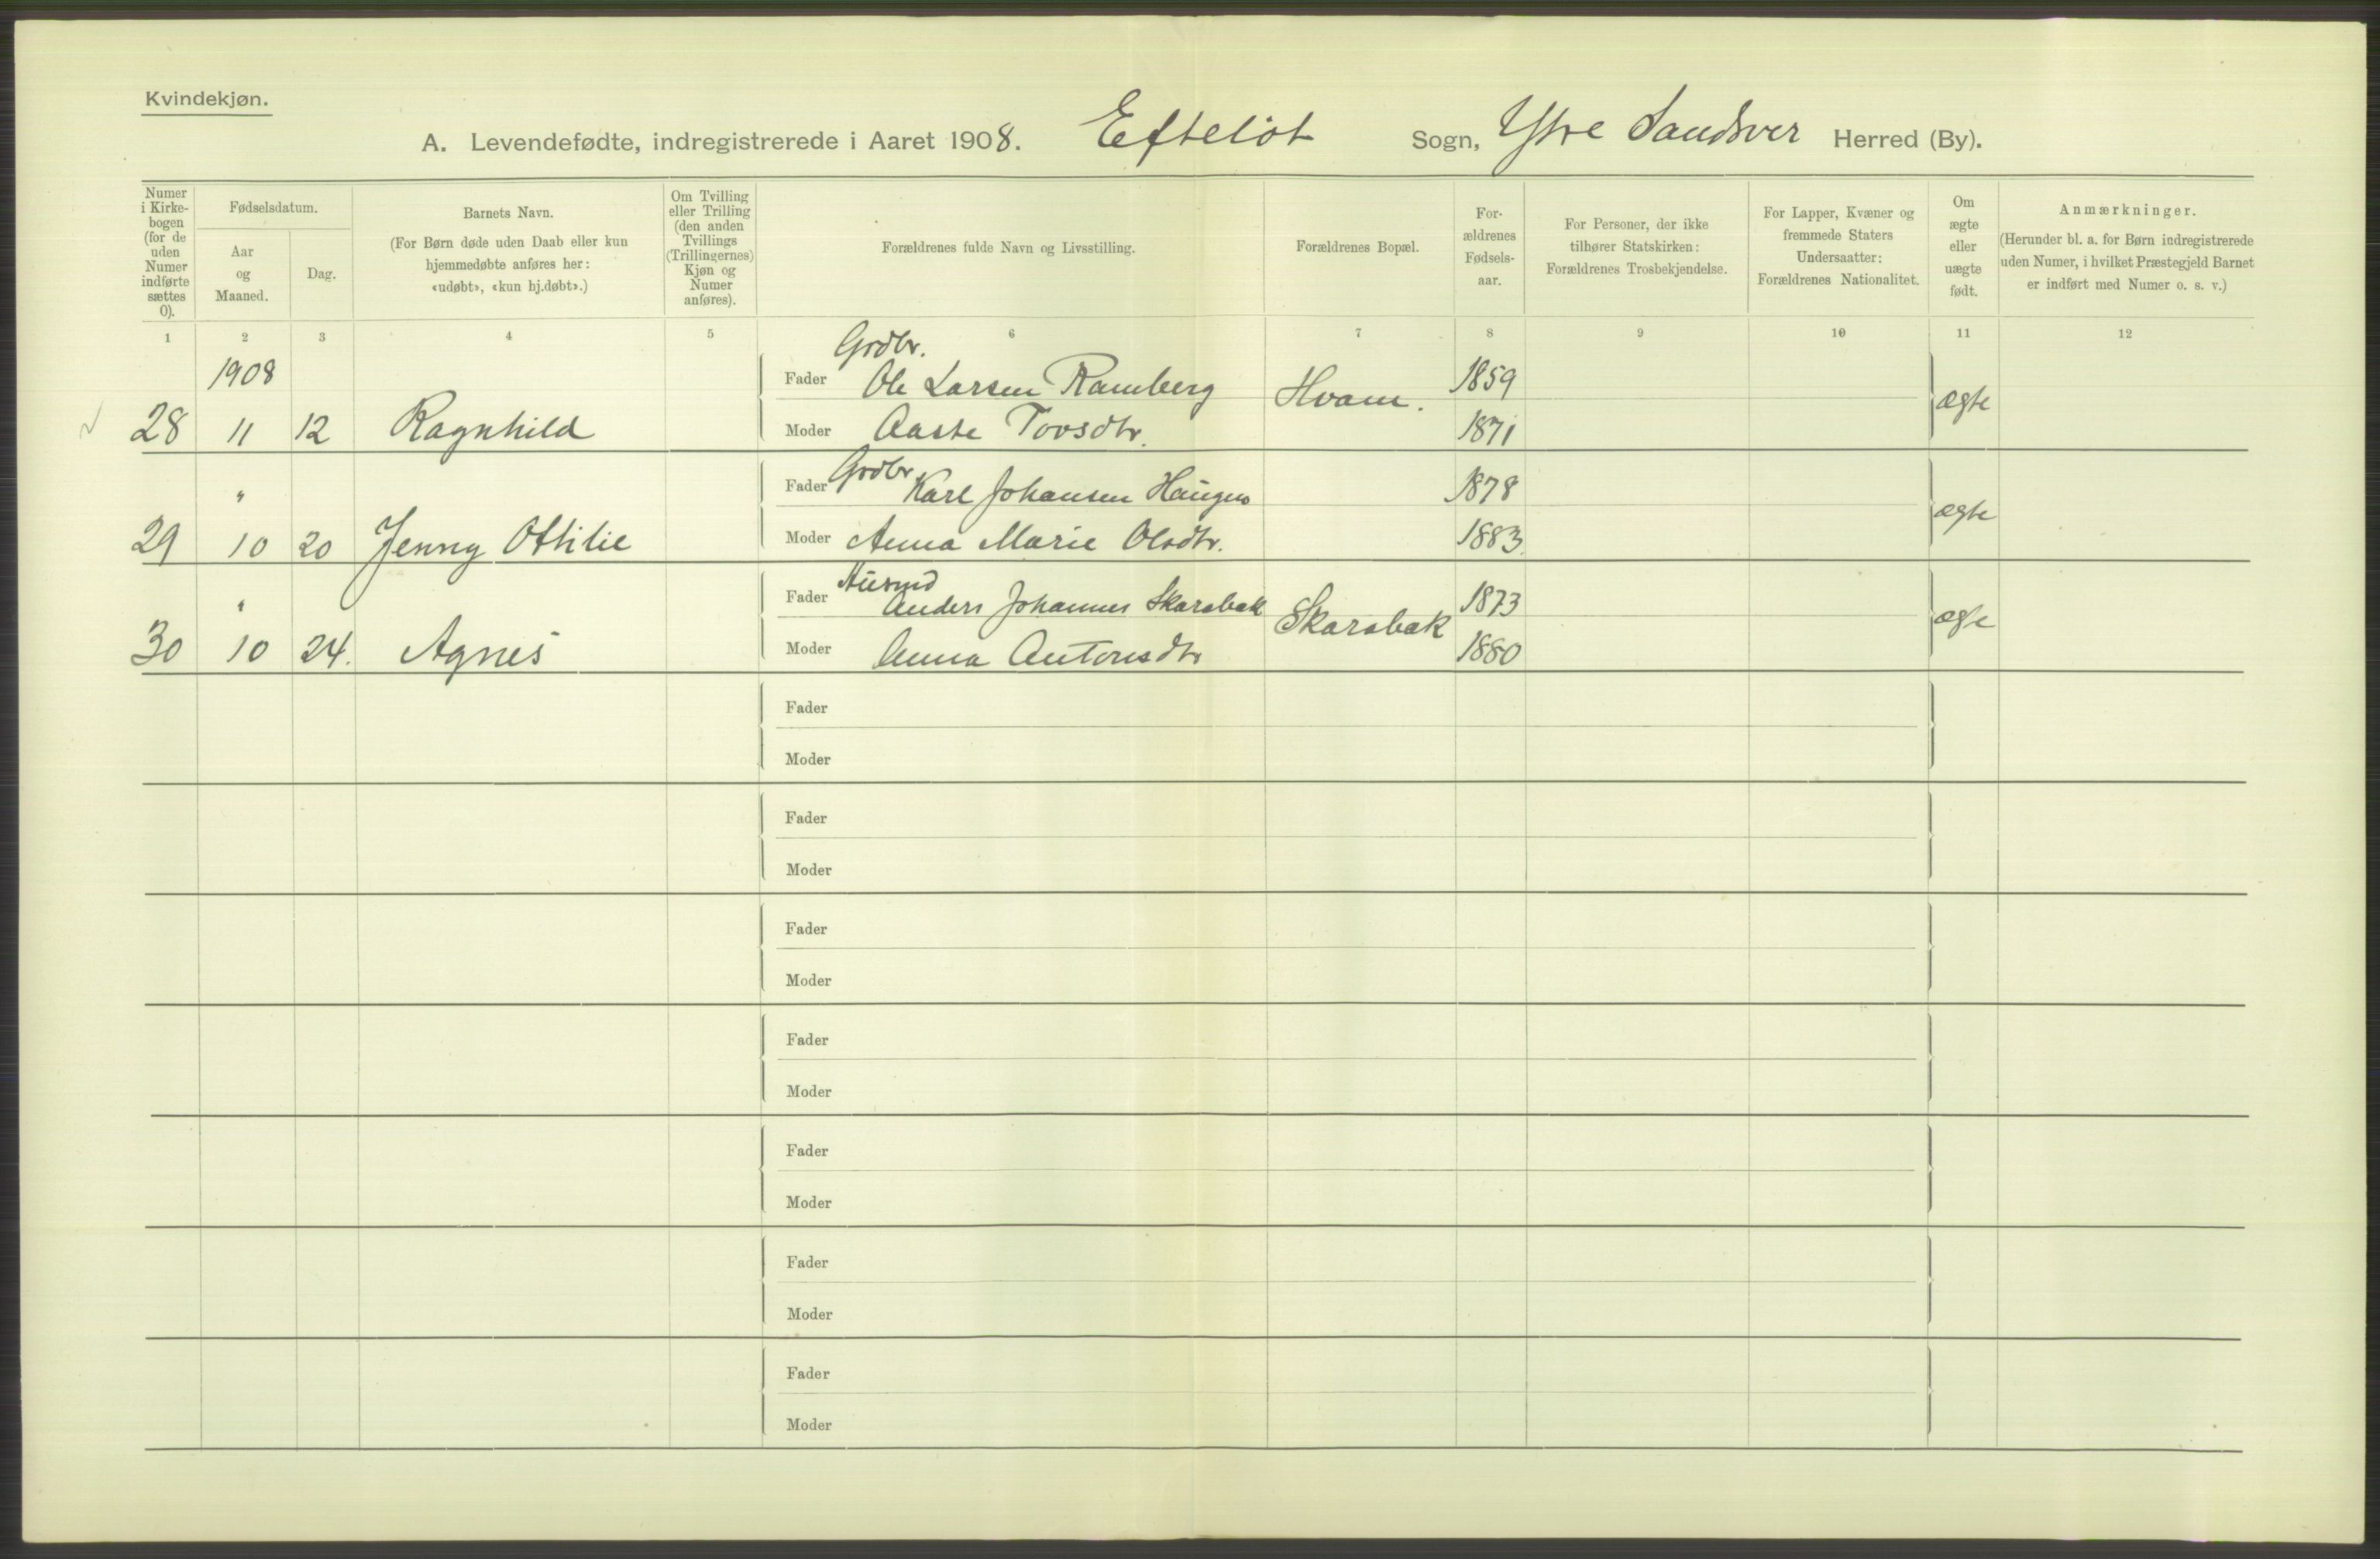 Kvindekjøn.
A. Levendefødte, indregistrerede i Aaret 1908. Efteløt Sogn, Ytre Sandsver Herred (By).
Numer i Kirke-bogen (for de uden Numer indførte sættes 0).
Fødselsdatum.
Aar og Maaned.
Dag.
Barnets Navn.
(For Børn døde uden Daab eller kun
hjemmedøbte anføres her:
«udøbt», «kun hj.døbt».)
Om Tvilling
eller Trilling
(den anden
Tvillings
(Trillingernes)
Kjøn og
Numer
anføres).
Forældrenes fulde Navn og Livsstilling.
Forældrenes Bopæl.
For-
ældrenes
Fødsels-
aar.
For Personer, der ikke
tilhører Statskirken:
Forældrenes Trosbekjendelse.
For Lapper, Kvæner og
fremmede Staters
Undersaatter:
Forældrenes Nationalitet.
Om
ægte
eller
uægte
født.
Anmærkninger.
(Herunder bl. a. for Børn indregistrerede
uden Numer, i hvilket Præstegjeld Barnet
er indført med Numer o. s. v.)
1 2 3 4 5 6 7 8 9 10 11 12
Grdbr.
1908 Fader Ole Larsen Ramberg Hvam. 1859 ægte
28 11 12 Ragnhild Moder Aaste Tovsdtr. 1871
" Fader Grdbr Karl Johansen Haugen 1878 ægte
29 10 20 Jenny Othilie Moder Anna Marie Olsdtr. 1883
Husmd
" Fader Anders Johannes Skarabak Skarabak 1873 ægte
30 10 24. Agnes Moder Anna Antonsdtr 1880
Fader
Moder
Fader
Moder
Fader
Moder
Fader
Moder
Fader
Moder
Fader
Moder
Fader
Moder